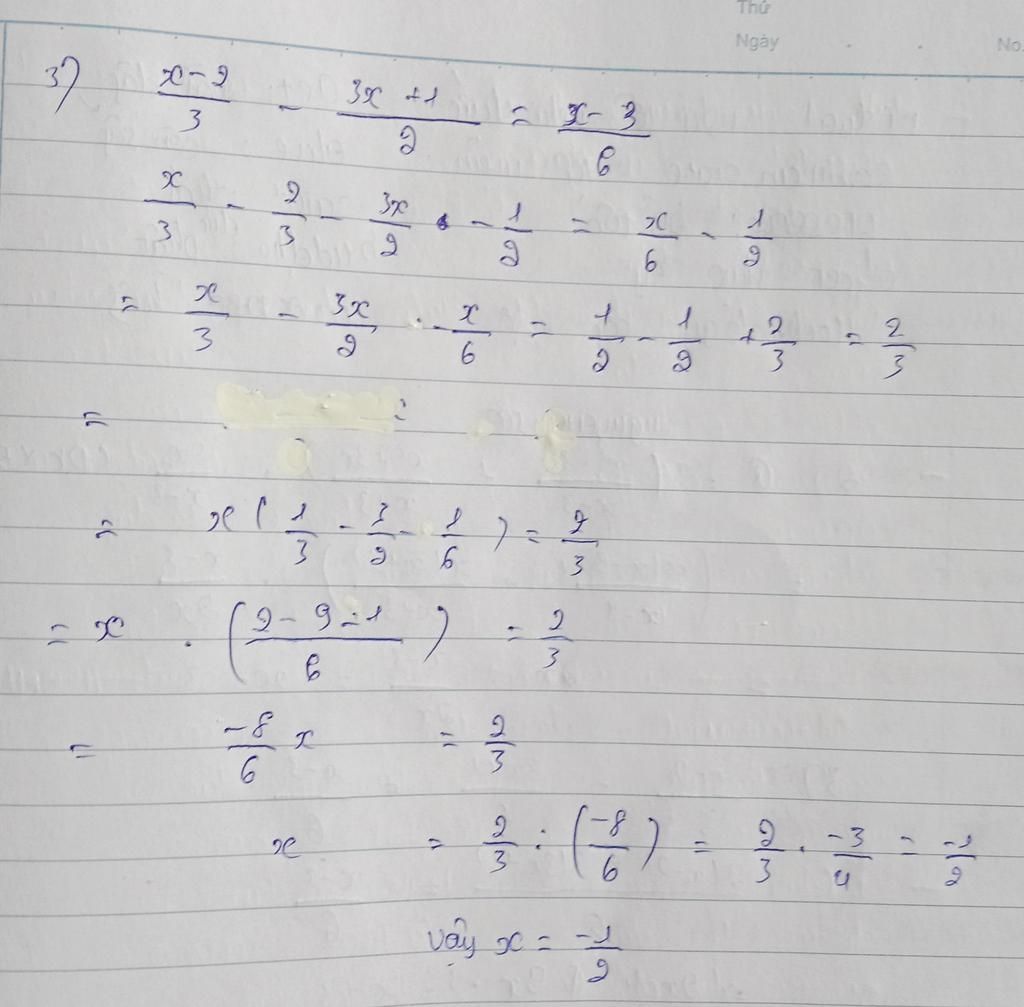 Thứ
Ngày No.
3) \frac{x-2}{3} - \frac{3x+1}{2} = \frac{x-3}{6}
\frac{x}{3} - \frac{2}{3} - \frac{3x}{2} - \frac{1}{2} = \frac{x}{6} - \frac{1}{2}
= \frac{x}{3} - \frac{3x}{2} - \frac{x}{6} = \frac{1}{2} - \frac{1}{2} + \frac{2}{3} = \frac{2}{3}
=
= x ( \frac{1}{3} - \frac{3}{2} - \frac{1}{6} ) = \frac{2}{3}
= x . ( \frac{2-9-1}{6} ) = \frac{2}{3}
= \frac{-8}{6} x = \frac{2}{3}
x = \frac{2}{3} : ( \frac{-8}{6} ) = \frac{2}{3} . \frac{-3}{4} = \frac{-1}{2}
vậy x = \frac{-1}{2}